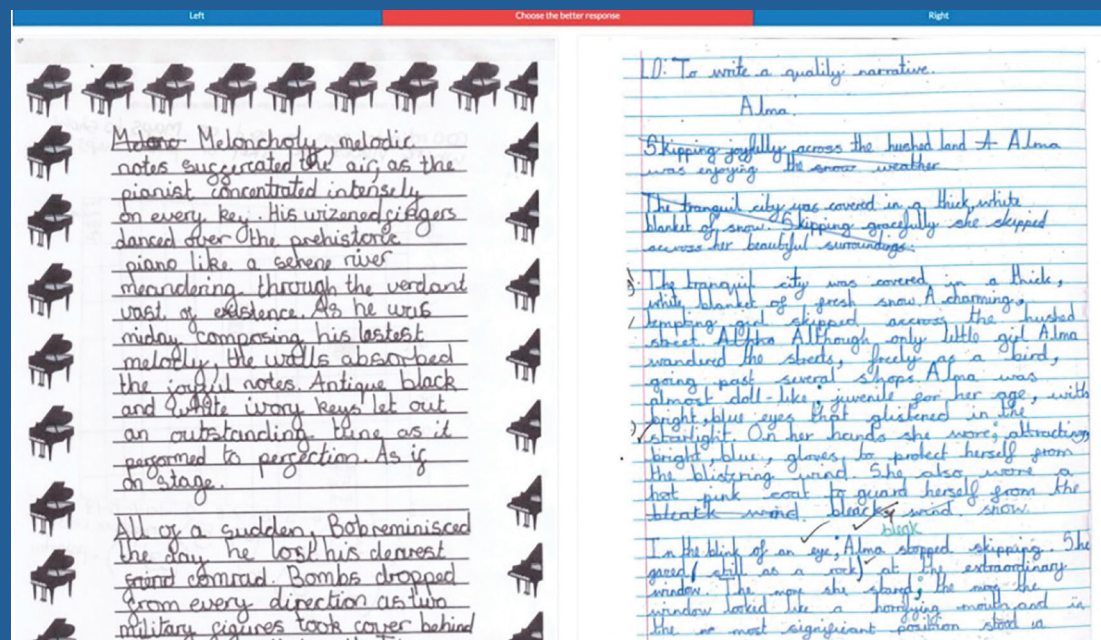 Left
Choose the better response
Right
Meloncholy, melodic
notes suffercated the air, as the
pianist concentrated intensely
on every key. His wizened fingers
danced over the prehistoric
piano like a serene river
meandering through the verdant
vast of existence. As he was
miday composing his lastest
melody, the walls absorbed
the joyful notes. Antique black
and white ivory keys let out
an outstanding tune as it
performed to perfection. As if
on stage.
All of a sudden, Bob reminisced
the day he lost his dearest
comrad. Bombs dropped
from every direction as two
military figures took cover behind
LO: To write a quality narrative.
Alma.
Skipping joyfully across the hushed land A Alma
was enjoying the snow weather
The tranquil city was covered in a thick, white
blanket of snow. Skipping gracefully she skipped
accross her beautiful surroundings.
The tranquil city was covered in a thick,
white blanket of fresh snow. A charming,
tempting girl skipped accross the hushed
street. Although only little girl Alma
wandured the streets, freely as a bird,
going past several shops. Alma was
almost doll-like, juvenile for her age, with
bright, blue eyes that glistened in the
starlight. On her hands she wore; attractive,
bright, blue, gloves to protect herself from
the blistering wind. She also wore a
hot pink coat to guard herself from the
bleack wind snow.
bleak
In the blink of an eye, Alma stopped skipping. She
gazed (still as a rock) at the extraordinary
window. The more she stared; the more the
window lookid like a horrifying mouth and in
the most significant position stood a